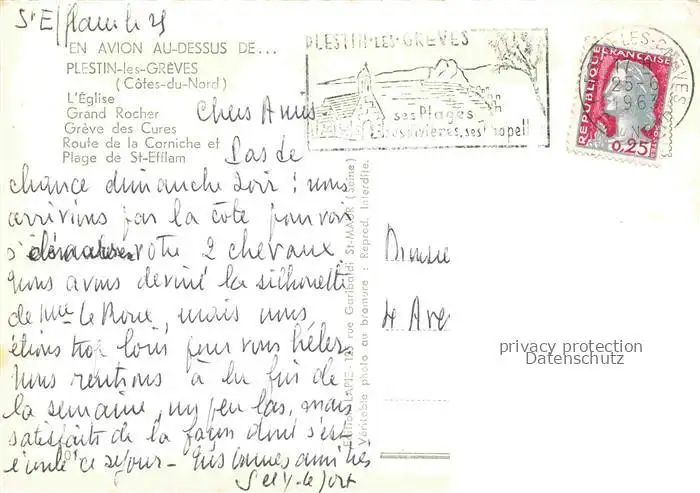 St Efflam le 25
EN AVION AU-DESSUS DE...
PLESTIN-les-GRÈVES
(Côtes-du-Nord)
L'Église
Grand Rocher
Grève des Cures
Route de la Corniche et
Plage de St-Efflam
Chers Amis
Pas de
chance dimanche soir ! nous
arrivions par la côte pour voir
s'éloigner votre 2 chevaux
nous avons deviné la silhouette
de Mme le Roux, mais nous
étions trop loin pour vous héler.
Nous rentrons à la fin de
la semaine, un peu las, mais
satisfaits de la façon dont s'est
écoulé ce séjour - Très bonnes amitiés
PLESTIN-LES-GRÈVES
ses Plages
ses Rivières, ses Chapelles
PLESTIN-LES-GRÈVES
25-6
1963
REPUBLIQUE FRANÇAISE
0,25
Editions LAPIE - 123 rue Garibaldi St-MAUR (Seine)
Véritable photo au bromure : Reprod. Interdite.
4 Ave
privacy protection
Datenschutz